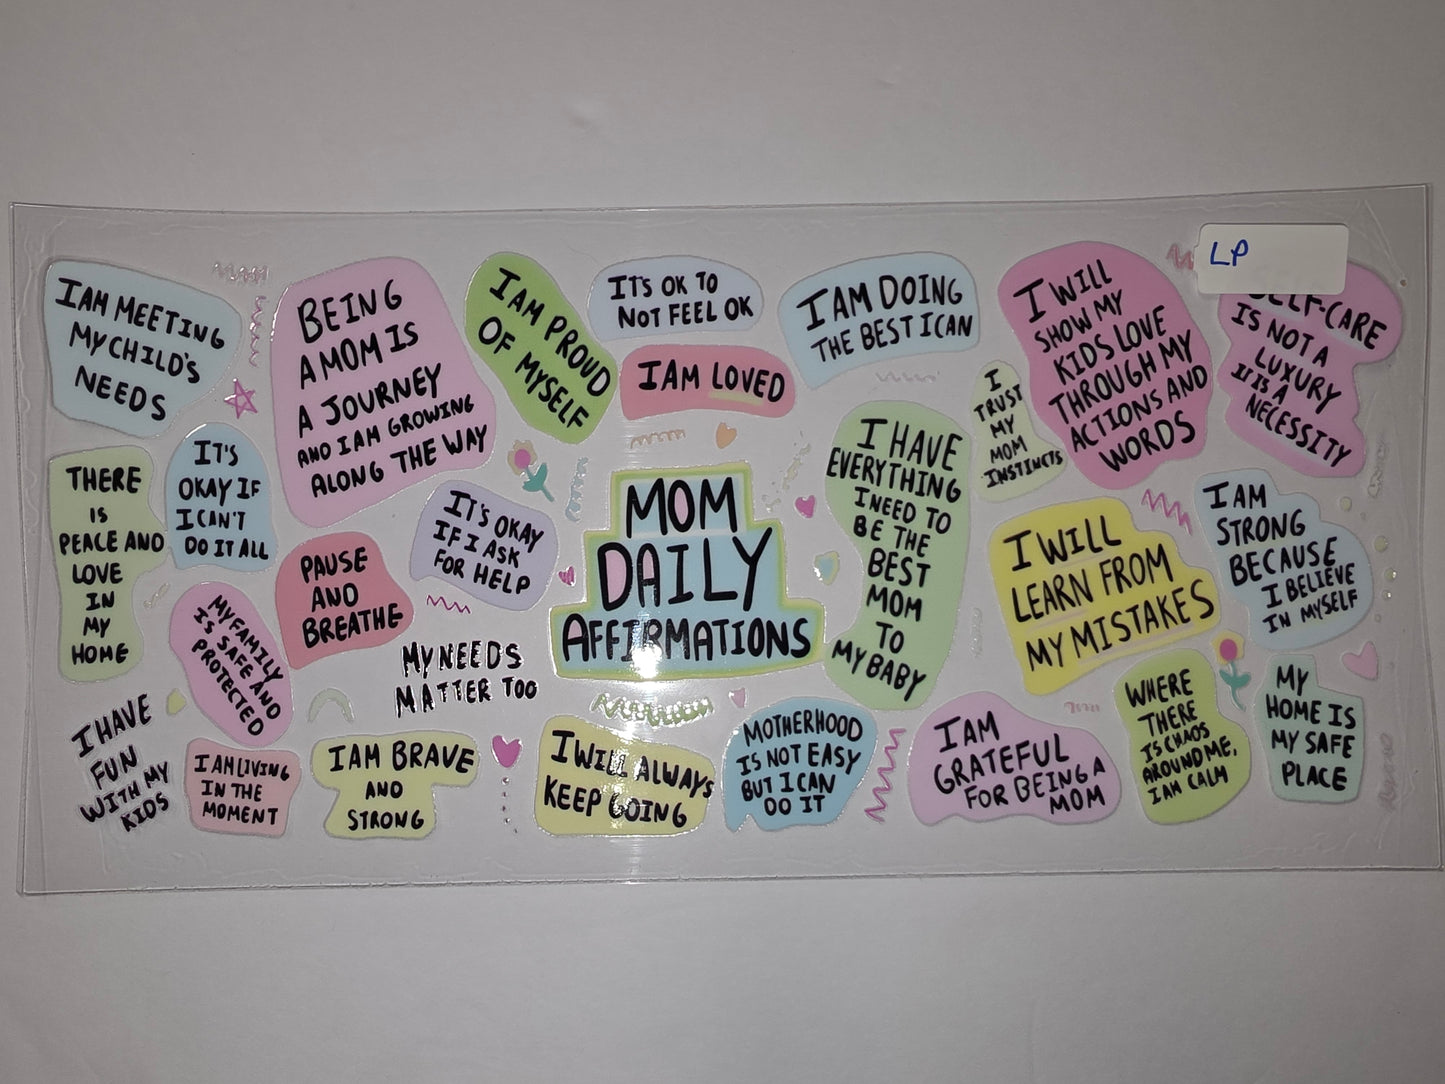 I AM MEETING
MY CHILD'S
NEEDS
BEING
A MOM IS
A JOURNEY
AND I AM GROWING
ALONG THE WAY
I AM PROUD
OF MYSELF
IT'S OK TO
NOT FEEL OK
I AM LOVED
I AM DOING
THE BEST I CAN
I WILL
SHOW MY
KIDS LOVE
THROUGH MY
ACTIONS AND
WORDS
LP
SELF-CARE
IS NOT A
LUXURY
IT IS A
NECESSITY
THERE
IS
PEACE AND
LOVE
IN
MY
HOME
IT'S
OKAY IF
I CAN'T
DO IT ALL
PAUSE
AND
BREATHE
IT'S OKAY
IF I ASK
FOR HELP
MOM
DAILY
AFFIRMATIONS
I HAVE
EVERYTHING
I NEED TO
BE THE
BEST
MOM
TO
MY BABY
I
TRUST
MY
MOM
INSTINCTS
I WILL
LEARN FROM
MY MISTAKES
I AM
STRONG
BECAUSE
I BELIEVE
IN MYSELF
MY FAMILY
IS SAFE AND
PROTECTED
MY NEEDS
MATTER TOO
I HAVE
FUN
WITH MY
KIDS
I AM LIVING
IN THE
MOMENT
I AM BRAVE
AND
STRONG
I WILL ALWAYS
KEEP GOING
MOTHERHOOD
IS NOT EASY
BUT I CAN
DO IT
I AM
GRATEFUL
FOR BEING A
MOM
WHERE
THERE
IS CHAOS
AROUND ME,
I AM CALM
MY
HOME IS
MY SAFE
PLACE